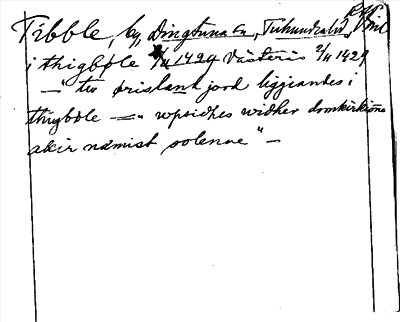 Tibble, by, Dingtuna sn, Tuhundra hd,
i thigbøle 2/11 1429 Västerås 2/11 1429
—"— tw ørisland jord liggiandes i
thigbøle —"— wpsidhes widher domkirkiöne
akir næmist solenne" —